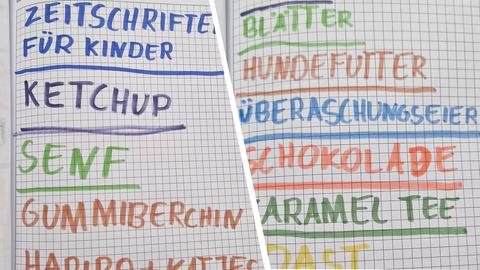 ZEITSCHRIFTE
FÜR KINDER
KETCHUP
SENF
GUMMIBERCHIN
HARIBO + KATJES
BLÄTTER
HUNDEFUTTER
ÜBERASCHUNGSEIER
SCHOKOLADE
KARAMEL TEE